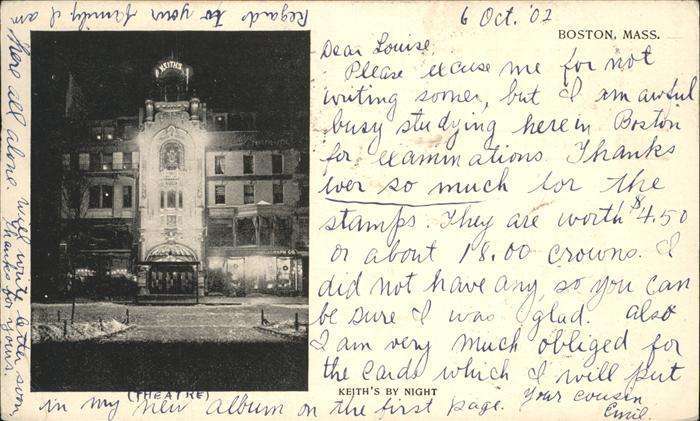 6 Oct. '02
BOSTON, MASS.
Dear Louise,
Please excuse me for not
writing sooner, but I am awful
busy studying here in Boston
for examinations. Thanks
ever so much for the
stamps. They are worth $4.50
or about 18.00 crowns. I
did not have any, so you can
be sure I was glad. also
I am very much obliged for
the cards which I will put
in my new album on the first page. Your cousin
Emil.
KEITH'S
(THEATRE)
KEITH'S BY NIGHT
Regards to your family. I am
here all alone. Will write letter soon.
Thanks for yours.